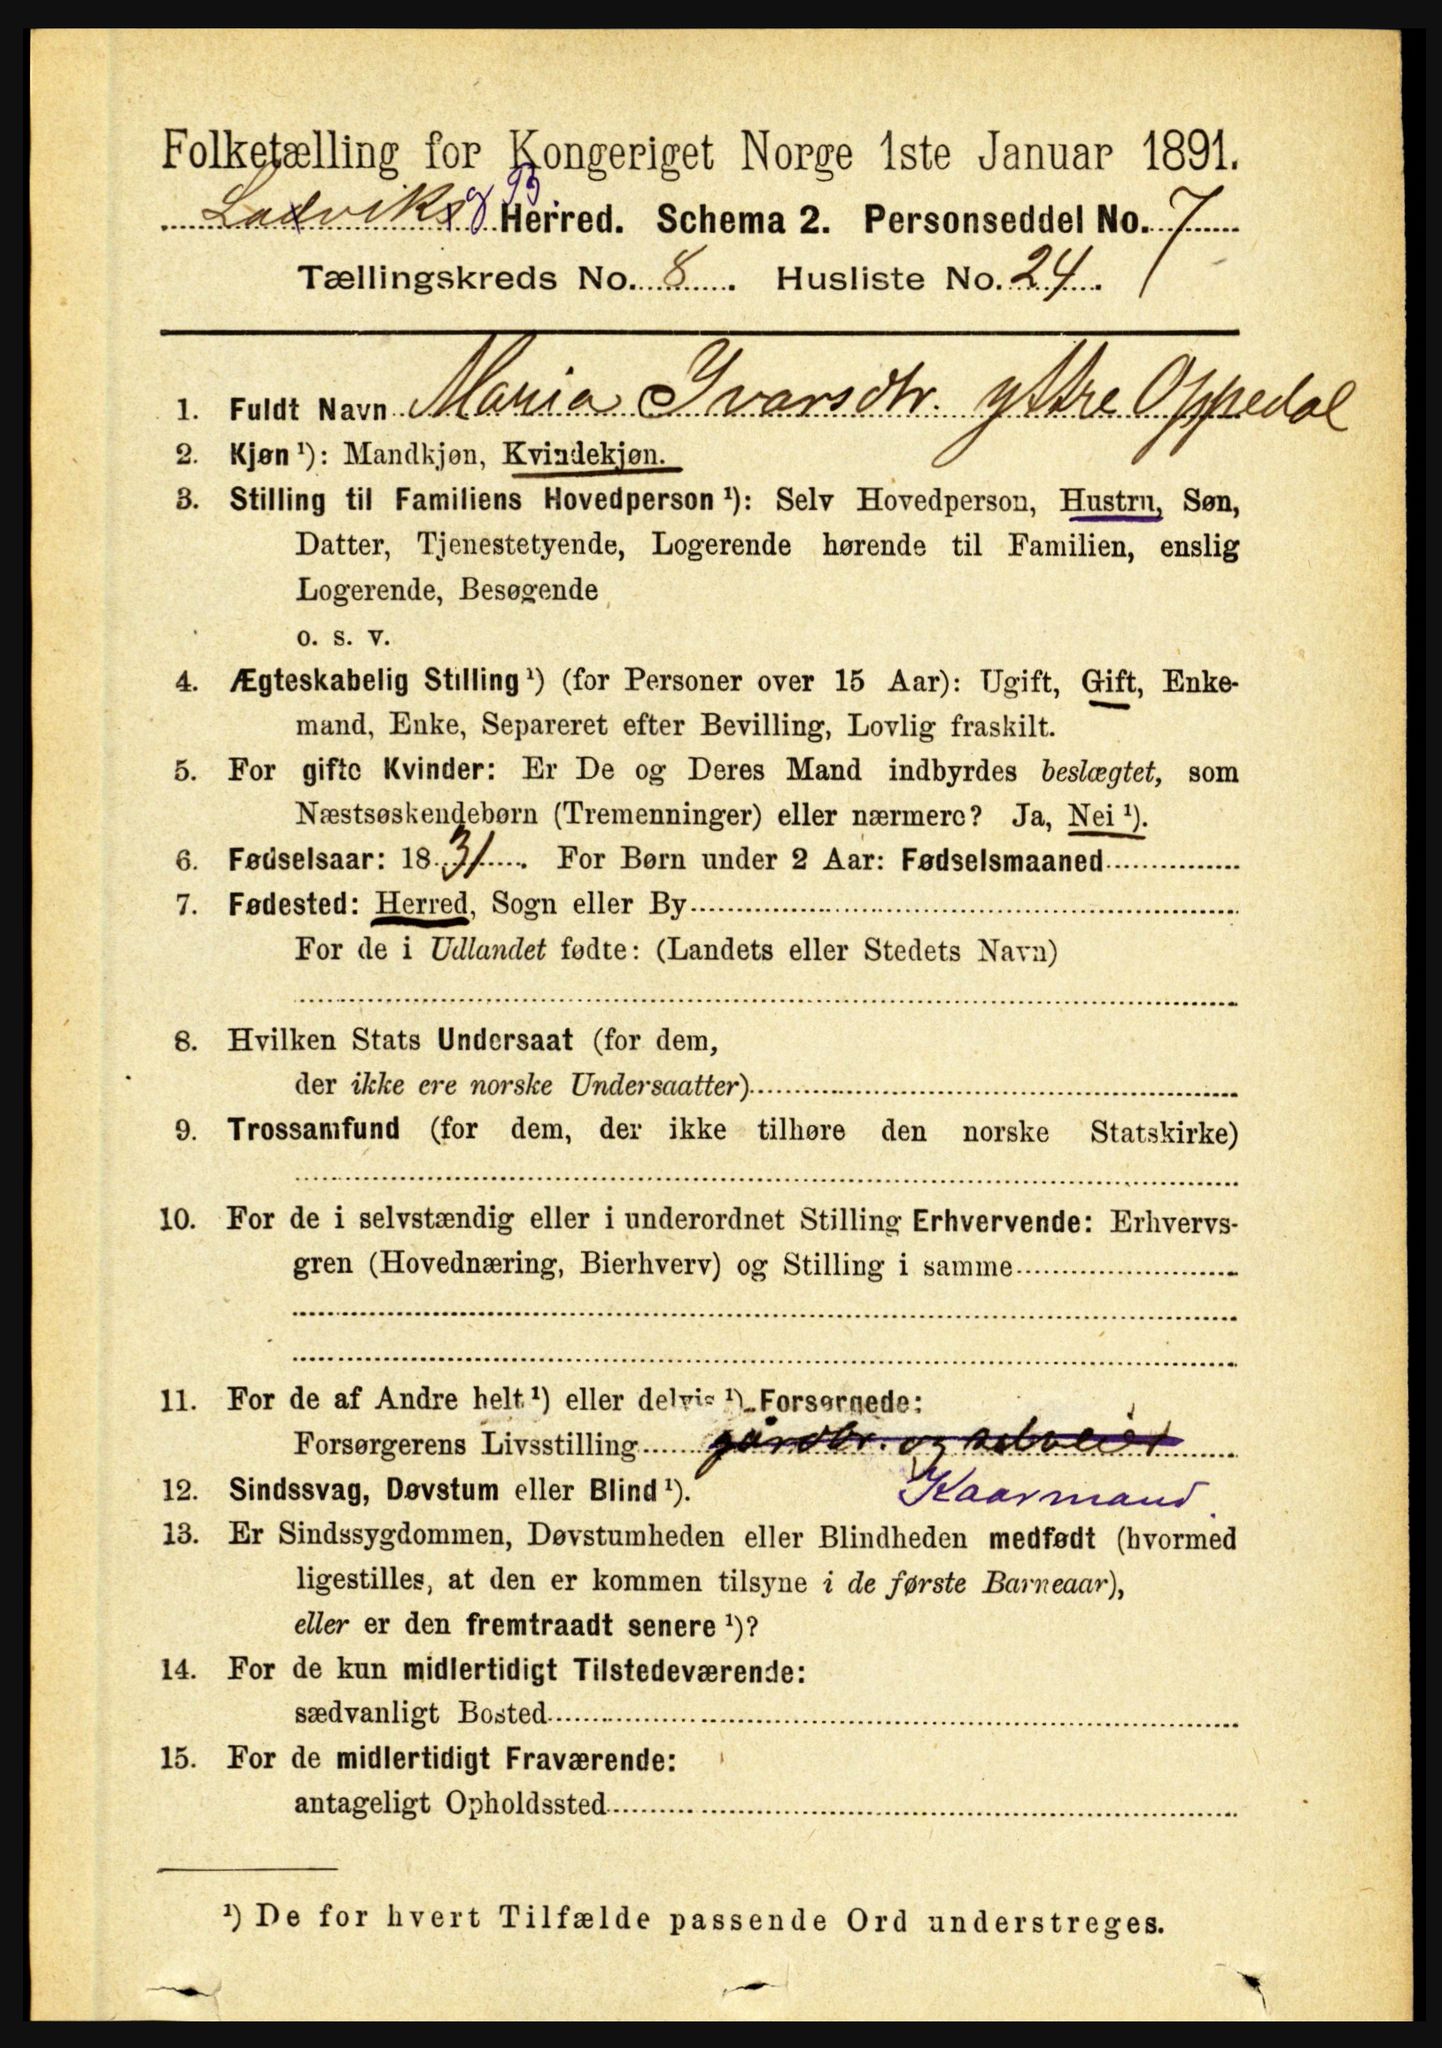 Folketælling for Kongeriget Norge 1ste Januar 1891.
Ladviks & B. Herred. Schema 2. Personseddel No. 7
Tællingskreds No. 8. Husliste No. 24.
1. Fuldt Navn Maria Ivarsdtr. yttre Oppedal
2. Kjøn ¹): Mandkjøn, Kvindekjøn.
3. Stilling til Familiens Hovedperson ¹): Selv Hovedperson, Hustru, Søn,
Datter, Tjenestetyende, Logerende hørende til Familien, enslig
Logerende, Besøgende
o. s. v.
4. Ægteskabelig Stilling ¹) (for Personer over 15 Aar): Ugift, Gift, Enke-
mand, Enke, Separeret efter Bevilling, Lovlig fraskilt.
5. For gifte Kvinder: Er De og Deres Mand indbyrdes beslægtet, som
Næstsøskendebørn (Tremenninger) eller nærmere? Ja, Nei ¹).
6. Fødselsaar: 1831. For Børn under 2 Aar: Fødselsmaaned
7. Fødested: Herred, Sogn eller By
For de i Udlandet fødte: (Landets eller Stedets Navn)
8. Hvilken Stats Undersaat (for dem,
der ikke ere norske Undersaatter)
9. Trossamfund (for dem, der ikke tilhøre den norske Statskirke)
10. For de i selvstændig eller i underordnet Stilling Erhvervende: Erhvervs-
gren (Hovednæring, Bierhverv) og Stilling i samme
11. For de af Andre helt ¹) eller delvis ¹) Forsørgede:
Forsørgerens Livsstilling gårdbr. og selveier
12. Sindssvag, Døvstum eller Blind ¹). Kaarmand.
13. Er Sindssygdommen, Døvstumheden eller Blindheden medfødt (hvormed
ligestilles, at den er kommen tilsyne i de første Barneaar),
eller er den fremtraadt senere ¹)?
14. For de kun midlertidigt Tilstedeværende:
sædvanligt Bosted
15. For de midlertidigt Fraværende:
antageligt Opholdssted
¹) De for hvert Tilfælde passende Ord understreges.